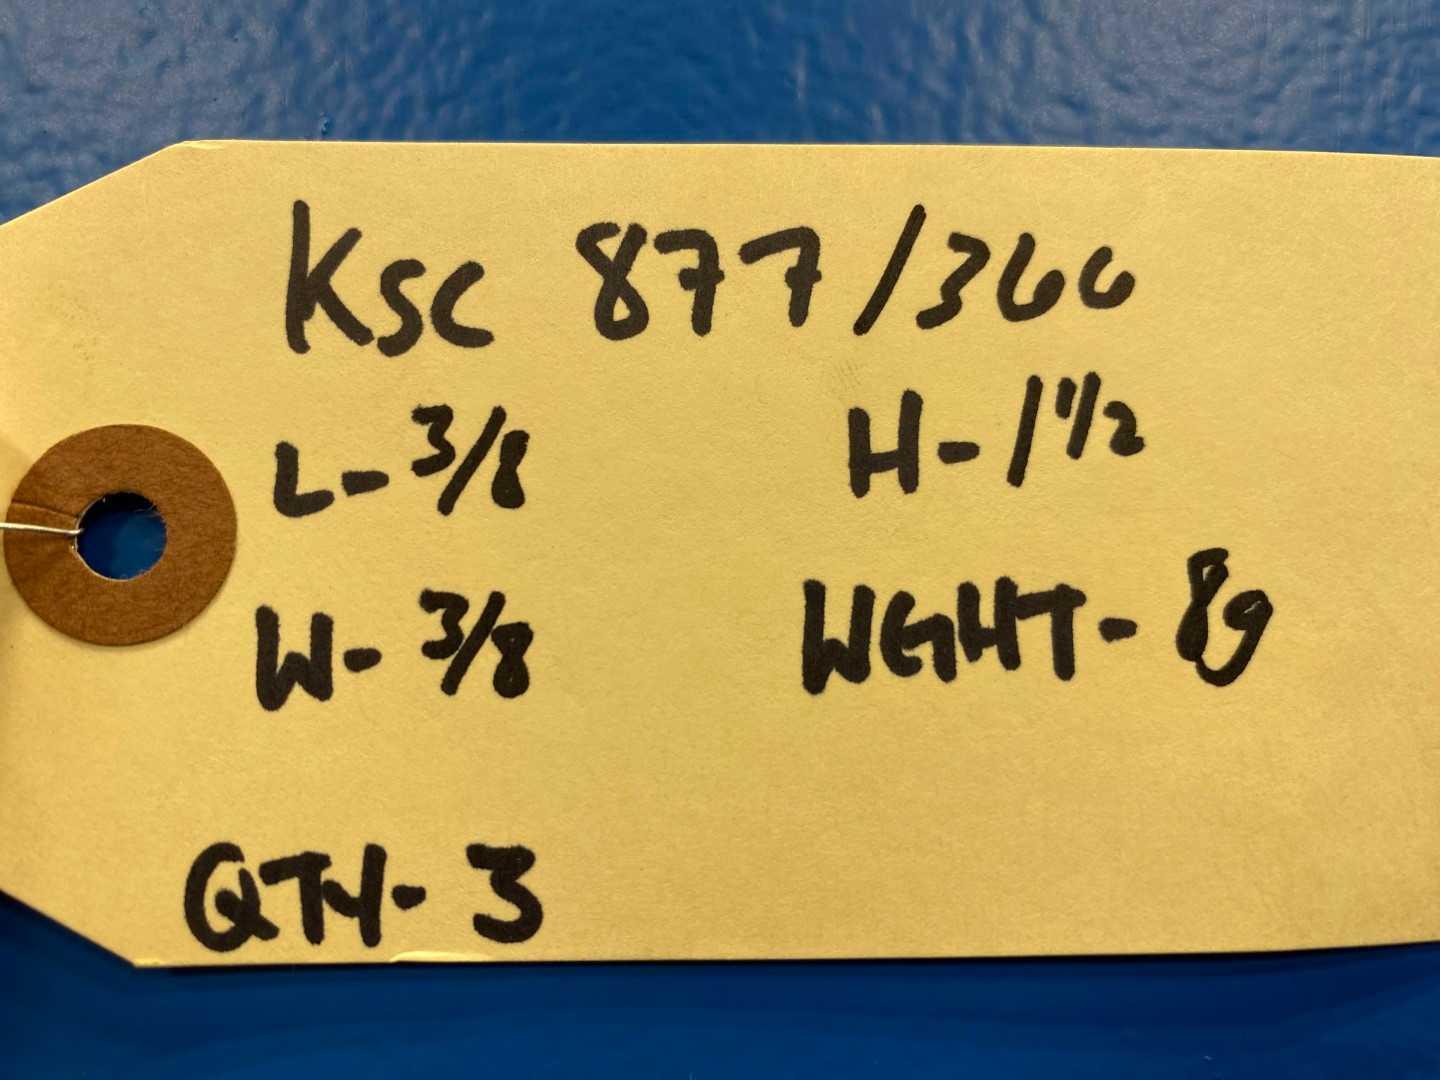 KSC 877/366
L-3/8 H-1 1/2
W-3/8 WGHT-8g
QTY-3